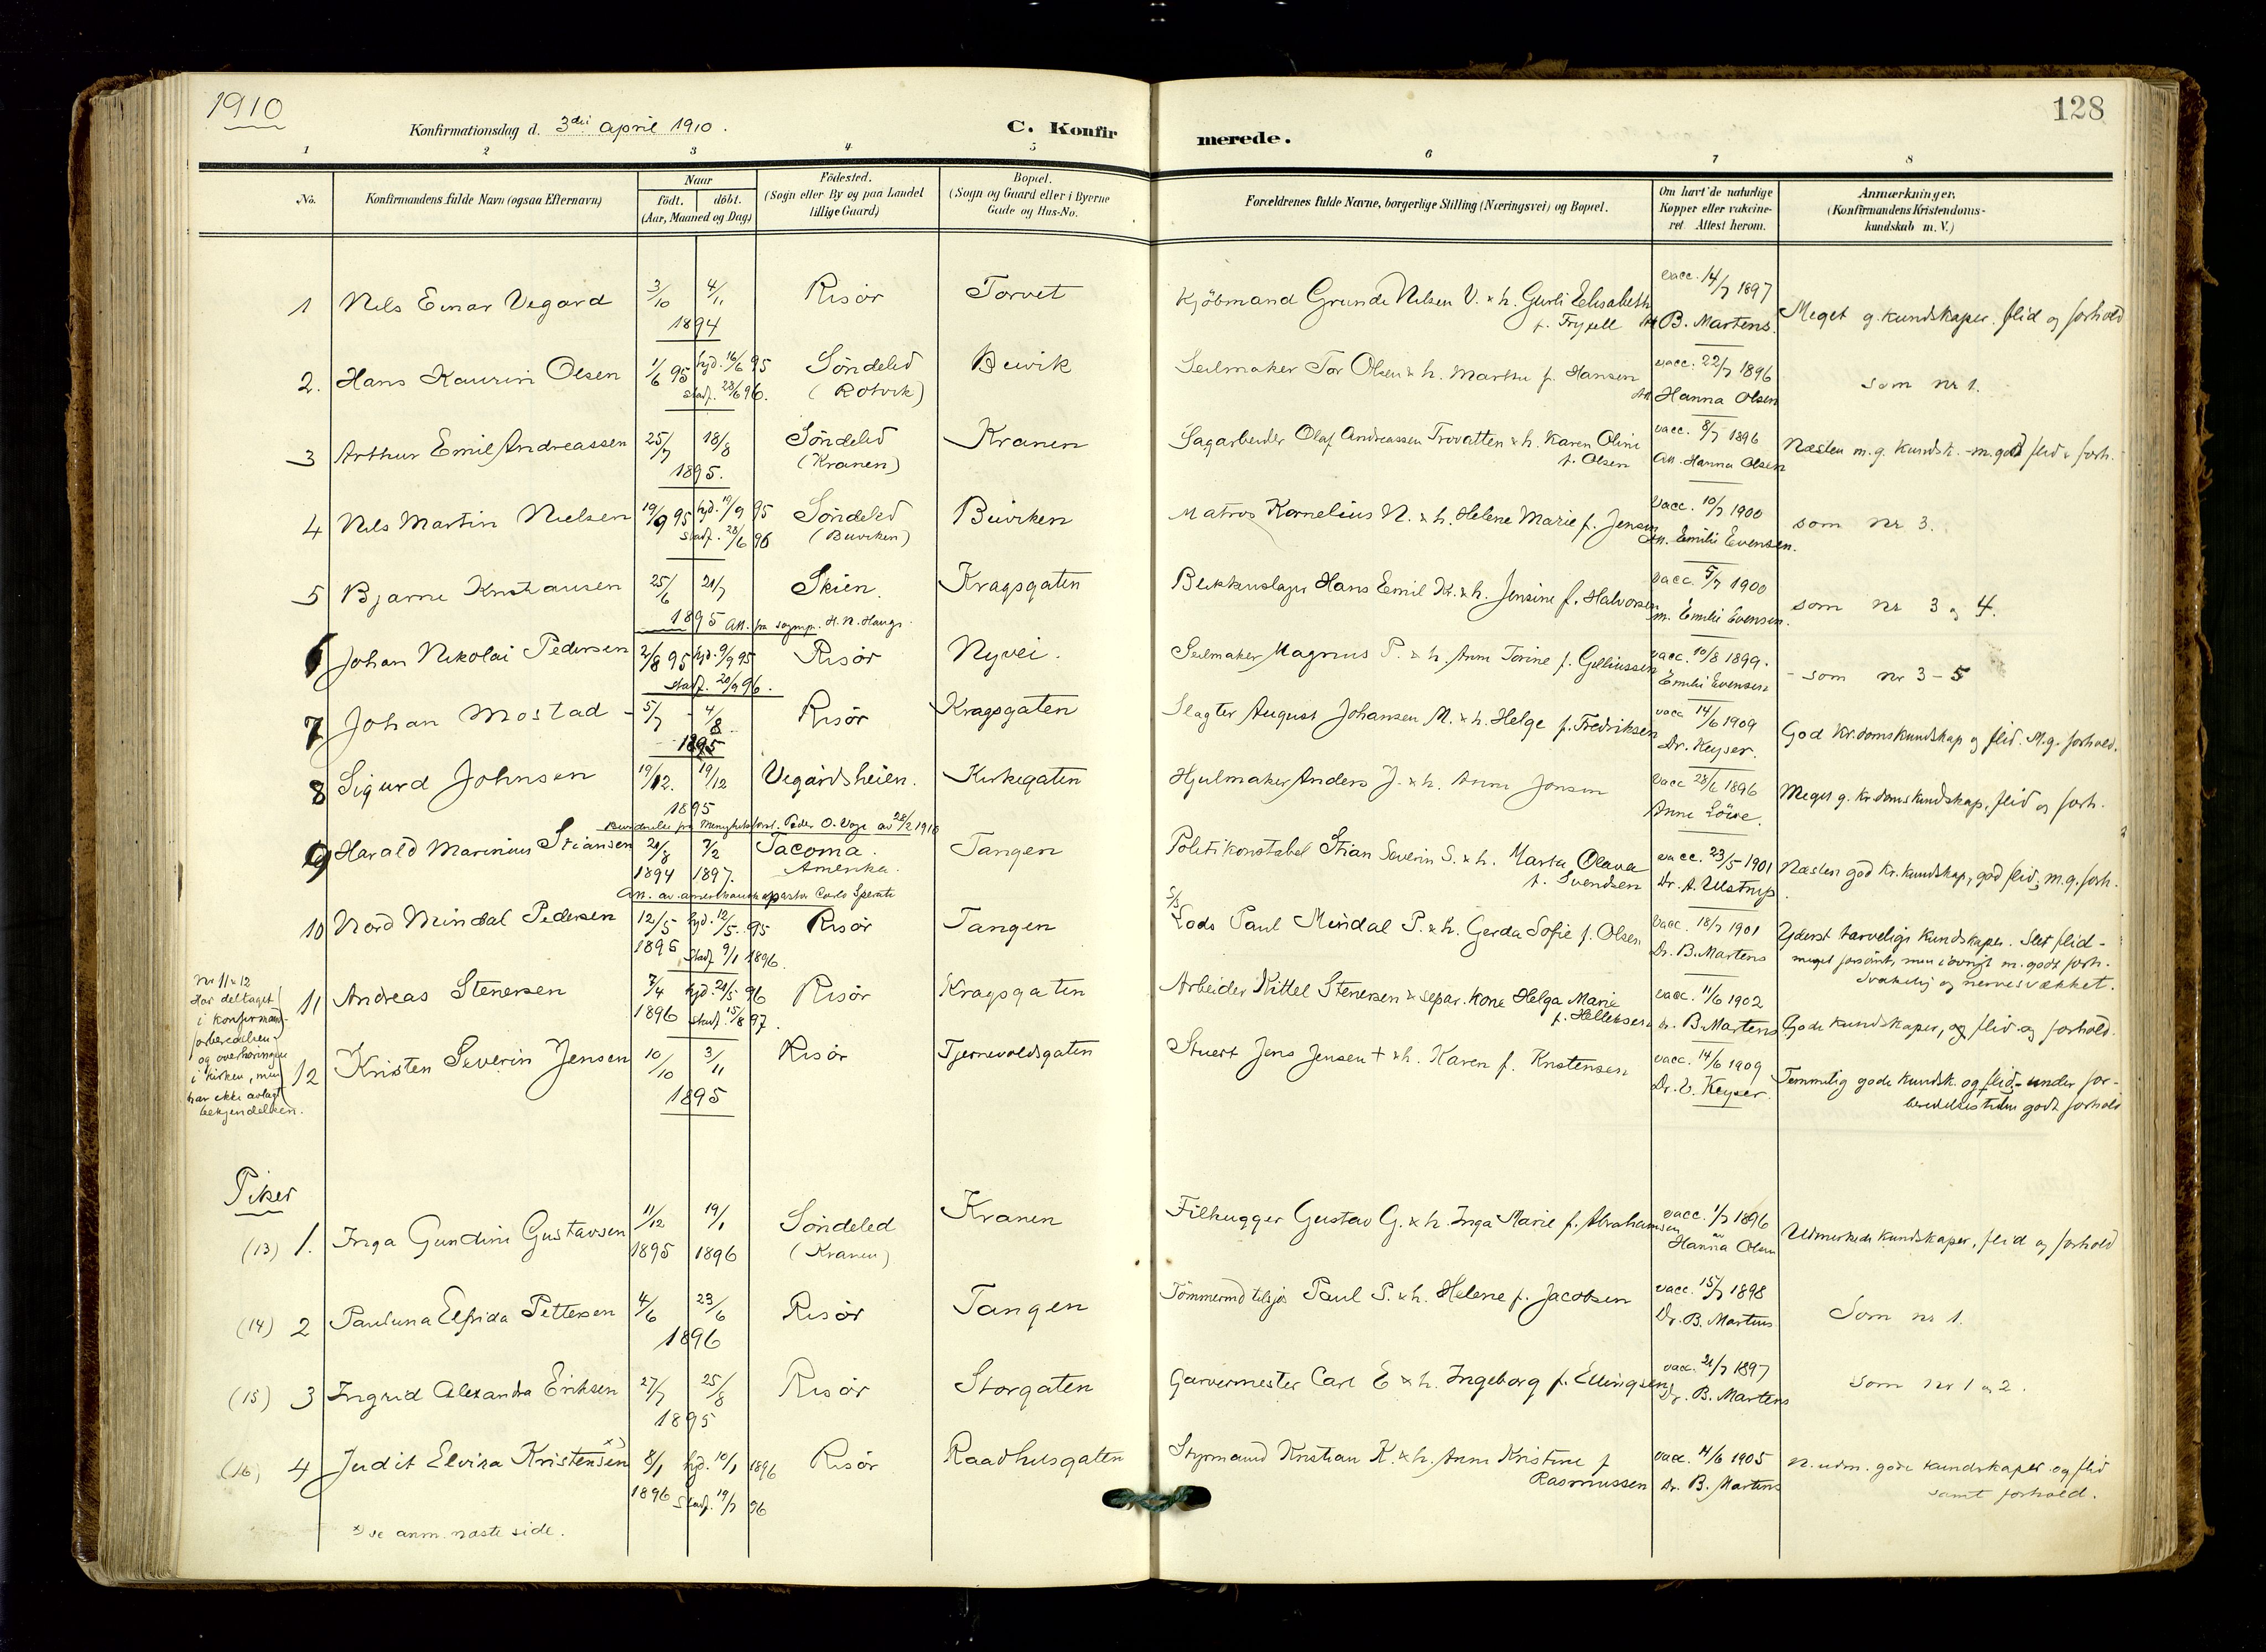 1910
128
Konfirmationsdag d. 3die April 1910.
C. Konfirmerede.
1 2 3 4 5 6 7 8
No.
Konfirmandens fulde Navn (ogsaa Efternavn)
Naar
födt. döbt.
(Aar, Maaned og Dag)
Födested.
(Sogn eller By og paa Landet
tillige Gaard)
Bopæl.
(Sogn og Gaard eller i Byerne
Gade og Hus-No.
Forældrenes fulde Navne, borgerlige Stilling (Næringsvei) og Bopæl.
Om havt de naturlige
Kopper eller vakcine-
ret Attest herom.
Anmærkninger.
(Konfirmandens Kristendoms-
kundskab m. V.)
1 Nils Einar Vegard 3/10 4/11 1894 Risör Torvet Kjöbmand Grunde Nilsen V. & h. Gurli Elisabeth
f. Fryxell
vacc. 14/7 1897
B. Martens.
Meget g. kundskaper. flid og forhold
2. Hans Kaurin Olsen 1/6 95 hjd. 16/6 95
stadf. 28/6 96.
Söndeled
(Rotvik)
Buvik
Seilmaker Tor Olsen & h. Marthe f. Hansen
vacc. 22/7 1896
Att. Hanna Olsen
som nr 1.
3 Arthur Emil Andreassen 25/7 18/8
1895.
Söndeled
(Kranen)
Kranen
Sagarbeider Olaf Andreassen Trovatten & h. Karen Oline
f. Olsen
vacc. 8/7 1896
Att. Hanna Olsen
Næsten m. g. kundsk. - m. god flid & forh.
4 Nils Martin Nielsen 19/9 95 hjd. 19/9 95
stadf. 28/6 96
Söndeled
(Buviken)
Buviken
Matros Kornelius N. & h. Helene Marie f. Jensen
vacc. 10/7 1900
Att. Emilie Evensen.
som nr 3.
5 Bjarne Kristiansen 25/6 21/7
1895 Att. fra sognepr. H. N. Haugs.
Skien.
Kragsgaten
Blikkenslager Hans Emil K. & h. Jensine f. Halvorsen
vacc. 5/7 1900
Emilie Evensen.
som nr 3 og 4.
6 Johan Nikolai Pedersen 2/8 95 hjd. 9/9 95
stadf. 20/9 96.
Risör
Nyvei.
Seilmaker Magnus P. & h. Anne Torine f. Gulliussen
vacc. 10/8 1899.
Emilie Evensen
- som nr 3-5
7 Johan Mostad 5/7 4/8
1895
Risör
Kragsgaten
Slagter August Johansen M. & h. Helge f. Fredriksen
vacc 14/6 1909
Dr. Keyser.
God kr.domskundskap og flid. M.g. forhold.
8 Sigurd Johnsen 19/12. 19/12
1895
Vegårdsheien.
Kirkegaten
Hjulmaker Anders J. & h. Anne Jonsen
Vacc 28/6 1896
Anne Löive.
Meget g. kr.domskundskap, flid og forh.
9 Harald Marinius Stiansen 21/8 7/2
1894 1897.
Att. av amerikansk pastor Carlo Sperati
Tacoma.
Amerika.
Tangen
Politikonstabel Stian Severin S. & h. Marta Olava
f. Svendsen
vacc. 23/5 1901
Dr. A. Ulstrup
Næsten god kr. kundskap, god flid; m.g. forh.
10 Nord Mindal Pedersen 12/5 hjd. 12/5. 95
1895 stadf 9/1 1896.
Risör
Tangen
Lods Paul Mindal P. & h. Gerda Sofie f. Olsen
Vacc. 18/7 1901
Dr. B. Martens
Yderst tarvelige kundskaper. Slet flid -
meget forsömt, men iövrigt m. godt forh.
Svakelig og nervesvækket.
nr 11 & 12
har deltaget
i konfirmand-
forberedelsen
og overhöringen
i kirken, men
har ikke avlagt
bekjendelsen.
11 Andreas Stenersen 7/4 hjd. 21/5 96
1896 stadf. 15/8 97.
Risör
Kragsgaten
Arbeider Kittel Stenersen & separ. kone Helga Marie
f. Helleksen
vacc. 11/6 1902
Dr. B. Martens
Gode kundskaper, og flid og forhold.
12 Kristen Severin Jensen 10/10 3/11
1895
Risör
Tjernevoldsgaten
Stuert Jens Jensen † & h. Karen f. Kristensen
vacc. 14/6 1909
Dr. V. Keyser.
Temmelig gode kundsk. og flid - under for-
beredelsestiden godt forhold
Piker
(13) 1. Inga Gundine Gustavsen 11/12 19/1
1895 1896
Söndeled
(Kranen)
Kranen
Filhugger Gustav G. & h. Inga Marie f. Abrahamsen
vacc. 1/7 1896
av Hanna Olsen
Udmerkede kundskaper, flid og forhold
(14) 2 Pauluna Elfrida Pettersen 4/6 23/6
1896
Risör
Tangen
Tömmermd tilsjös Paul P. & h. Helene f. Jacobsen
vacc. 15/7 1898
Dr. B. Martens
Som nr 1.
(15) 3 Ingrid Alexandra Eriksen 27/7 25/8
1895
Risör
Storgaten
Garvermester Carl E & h. Ingeborg f. Ellingsen
vacc. 21/7 1897
Dr. B. Martens
Som nr 1 og 2.
(16) 4 Judit Elvira Kristensen x) 8/1 hjd. 10/1 1896
1896 stadf. 19/7 96
Risör
Raadhusgaten
Styrmand Kristian K. & h. Anne Kristine f
Rasmussen
vacc. 14/6 1905
Dr. B. Martens
N. udm. gode kundskaper og flid
samt forhold.
x) se anm. næste side.